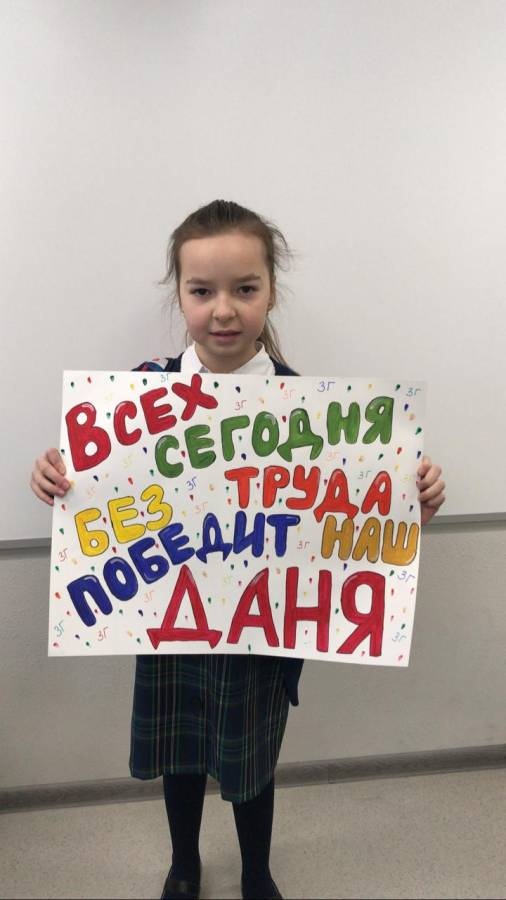 Всех
СЕГОДНЯ
БЕЗ ТРУДА
ПОБЕДИТ НАШ
ДАНЯ
3Г 3Г 3Г 3Г 3Г 3Г 3Г 3Г 3Г 3Г 3Г 3Г 3Г 3Г